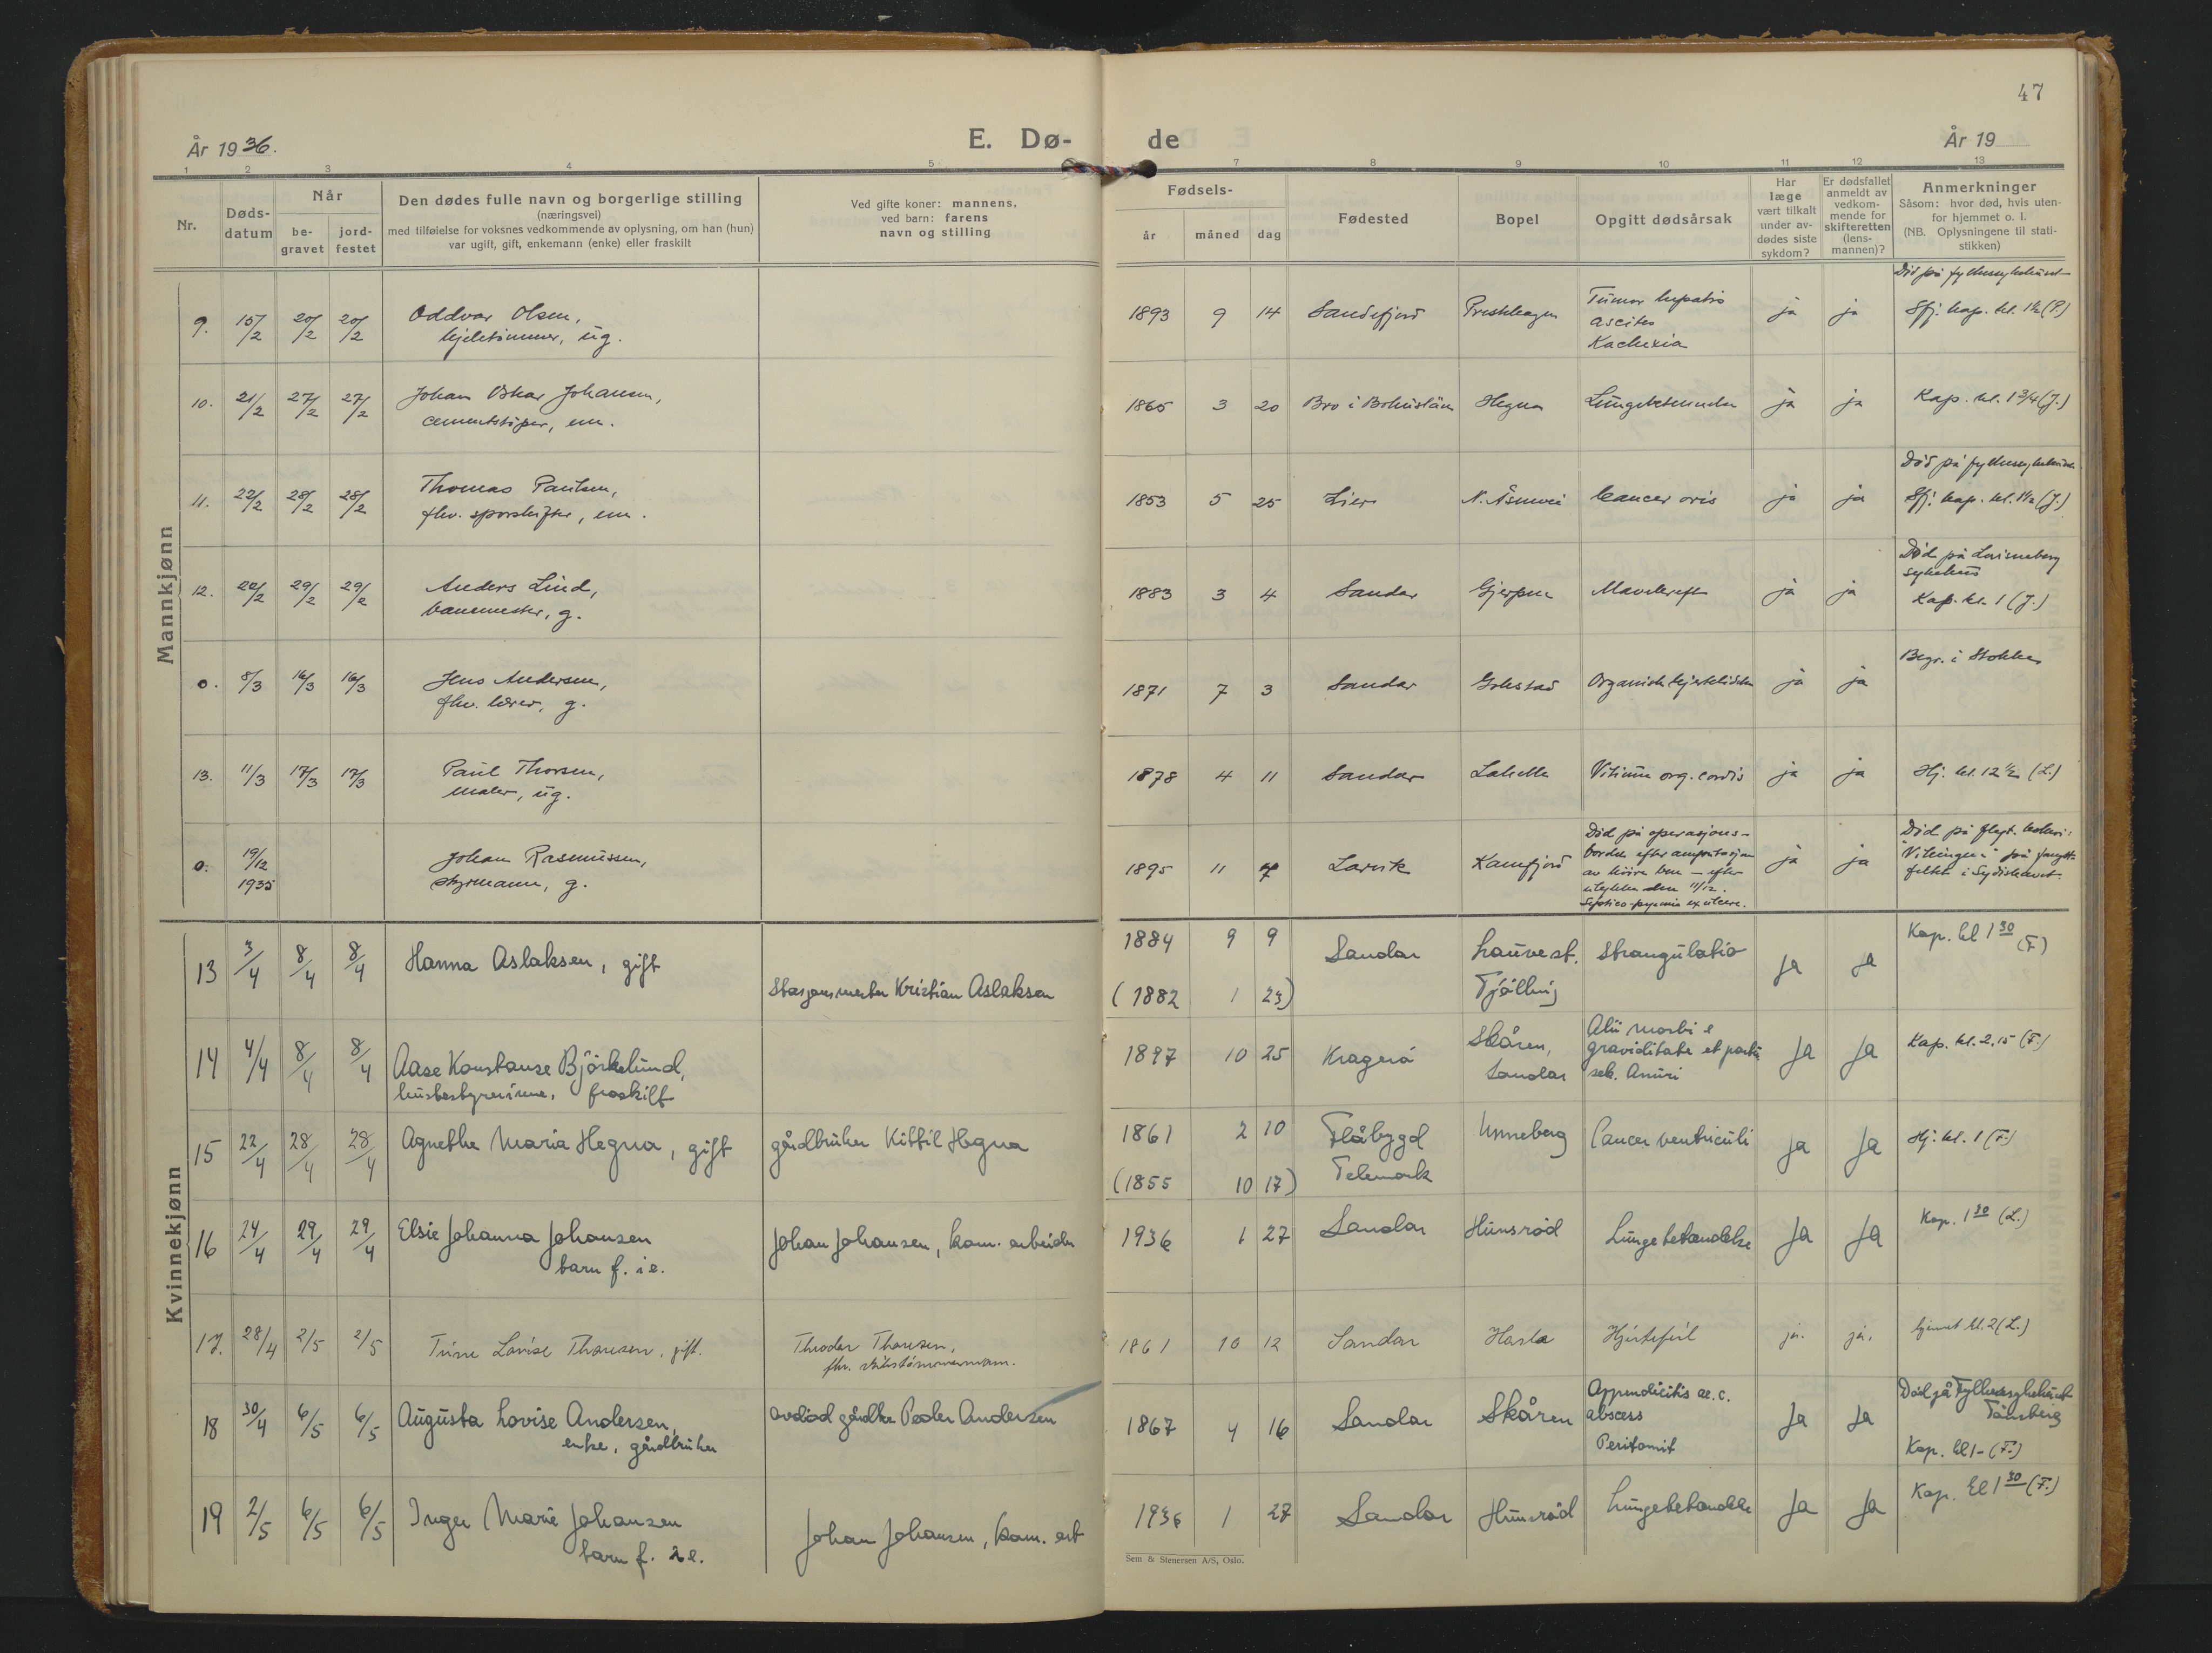 47
År 1936.
E. Dø-
de
År 19
1 2 3 4 5 7 8 9 10 11 12 13
Nr.
Døds-
datum
Når
be-
gravet
jord-
festet
Den dødes fulle navn og borgerlige stilling
(næringsvei)
med tilføielse for voksnes vedkommende av oplysning, om han (hun)
var ugift, gift, enkemann (enke) eller fraskilt
Ved gifte koner: mannens,
ved barn: farens
navn og stilling
Fødsels-
år måned dag
Fødested
Bopel
Opgitt dødsårsak
Har
læge
vært tilkalt
under av-
dødes siste
sykdom?
Er dødsfallet
anmeldt av
vedkom-
mende for
skifteretten
(lens-
mannen)?
Anmerkninger
Såsom: hvor død, hvis uten-
for hjemmet o. l.
(NB. Oplysningene til stati-
stikken)
Mannkjønn
9. 15/2 20/2 20/2
Oddvar Olsen,
ug.
1893 9 14 Sandefjord
Tumor hepatis
ascites
Kachexia
ja ja
Død på fylkessykehuset
Sfj. kap. kl. 1½ (P.)
10. 21/2 27/2 27/2
Johan Oskar Johansen,
cementstøper, em.
1865 3 20 Bro i Bohuslän Hegna Lungebetendelse ja ja
Kap. kl. 1 3/4 (J.)
11. 22/2 28/2 28/2
Thomas Paulsen,
fhv. sporskifter, em.
1853 5 25 Lier N. Åsenvei Cancer oris ja ja
Død på fylkessykehuset
Sfj. kap. kl. 1½ (J.)
12. 29/2 29/2
Anders Lind,
banemester, g.
1883 3 4 Sandar Gjerpen Mavekreft ja ja
Død på Lovisenberg
sykehus
Kap. kl. 1 (J.)
o. 8/3 16/3 16/3
Jens Andersen,
fhv. lærer, g.
1871 7 3 Sandar Gokstad Organisk hjertelidelse ja ja
Begr. i Stokke
13. 11/3 17/3 17/3
Paul Thorsen,
maler, ug.
1878 4 11 Sandar Lahelle Vitium org. cordis ja ja
Hj. kl. 12½ (L.)
o. 19/12
1935
Johan Rasmussen,
styrmann, g.
1895 11 7 Larvik Kamfjord
Død på operasjons-
bordet efter amputasjon
av høire ben - efter
ulykke den 11/12.
Septico-pyemia ex ulcere.
ja ja
Død på flyt. kokeri
"Vikingen" på fangst-
feltet i Sydishavet.
Kvinnekjønn
13 3/4 8/4 8/4
Hanna Aslaksen, gift
Stasjonsmester Kristian Aslaksen
1884 9 9
(1882 1 23)
Sandar
Lauvest.
Tjølling
Strangulatio
ja ja
Kap. kl 1 30 (F)
14 4/4 8/4 8/4
Aase Konstanse Björkelund,
husbestyrerinne, fraskilt
1897 10 25 Kragerö
Skåren,
Sandar
Alii morbi e
graviditate et partu
sek. Anuri
Ja Ja
Kap. kl. 2,15 (F.)
15 22/4 28/4 28/4
Agnethe Maria Hegna, gift
gårdbruker Kittil Hegna
1861 2 10
(1855 10 17)
Flåbygd
Telemark
Unneberg Cancer ventriculi
Ja Ja
Hj. kl. 1 (F.)
16 24/4 29/4 29/4
Elsie Johanna Johansen
barn f. i e.
Johan Johansen, kom. arbeider
1936 1 27 Sandar Hunsröd Lungebetændelse Ja Ja
Kap. 1 30 (L.)
17. 28/4 2/5 2/5
Trine Lovise Thoresen, gift.
Theodor Thoresen,
1861 10 12 Sandar Hasle Hjertefeil ja. ja.
hjemmet kl. 2 (L.)
18 30/4 6/5 6/5
Augusta Lovise Andersen,
enke, gårdbruker
avdöd gårdbr Peder Andersen
1867 4 16 Sandar Skåren
Appendicitis ac. c.
abscess
Peritonit
Ja Ja
Död på Fylkessykehuset
Tönsberg
Kap. kl 1 - (F.)
19 2/5 6/5 6/5
Inger Marie Johansen
barn f. i e.
Johan Johansen, kom. arb
1936 1 27 Sandar Hunsröd Lungebetændelse Ja Ja
Kap. kl 1 30 (F.)
Sem & Stenersen A/S, Oslo.